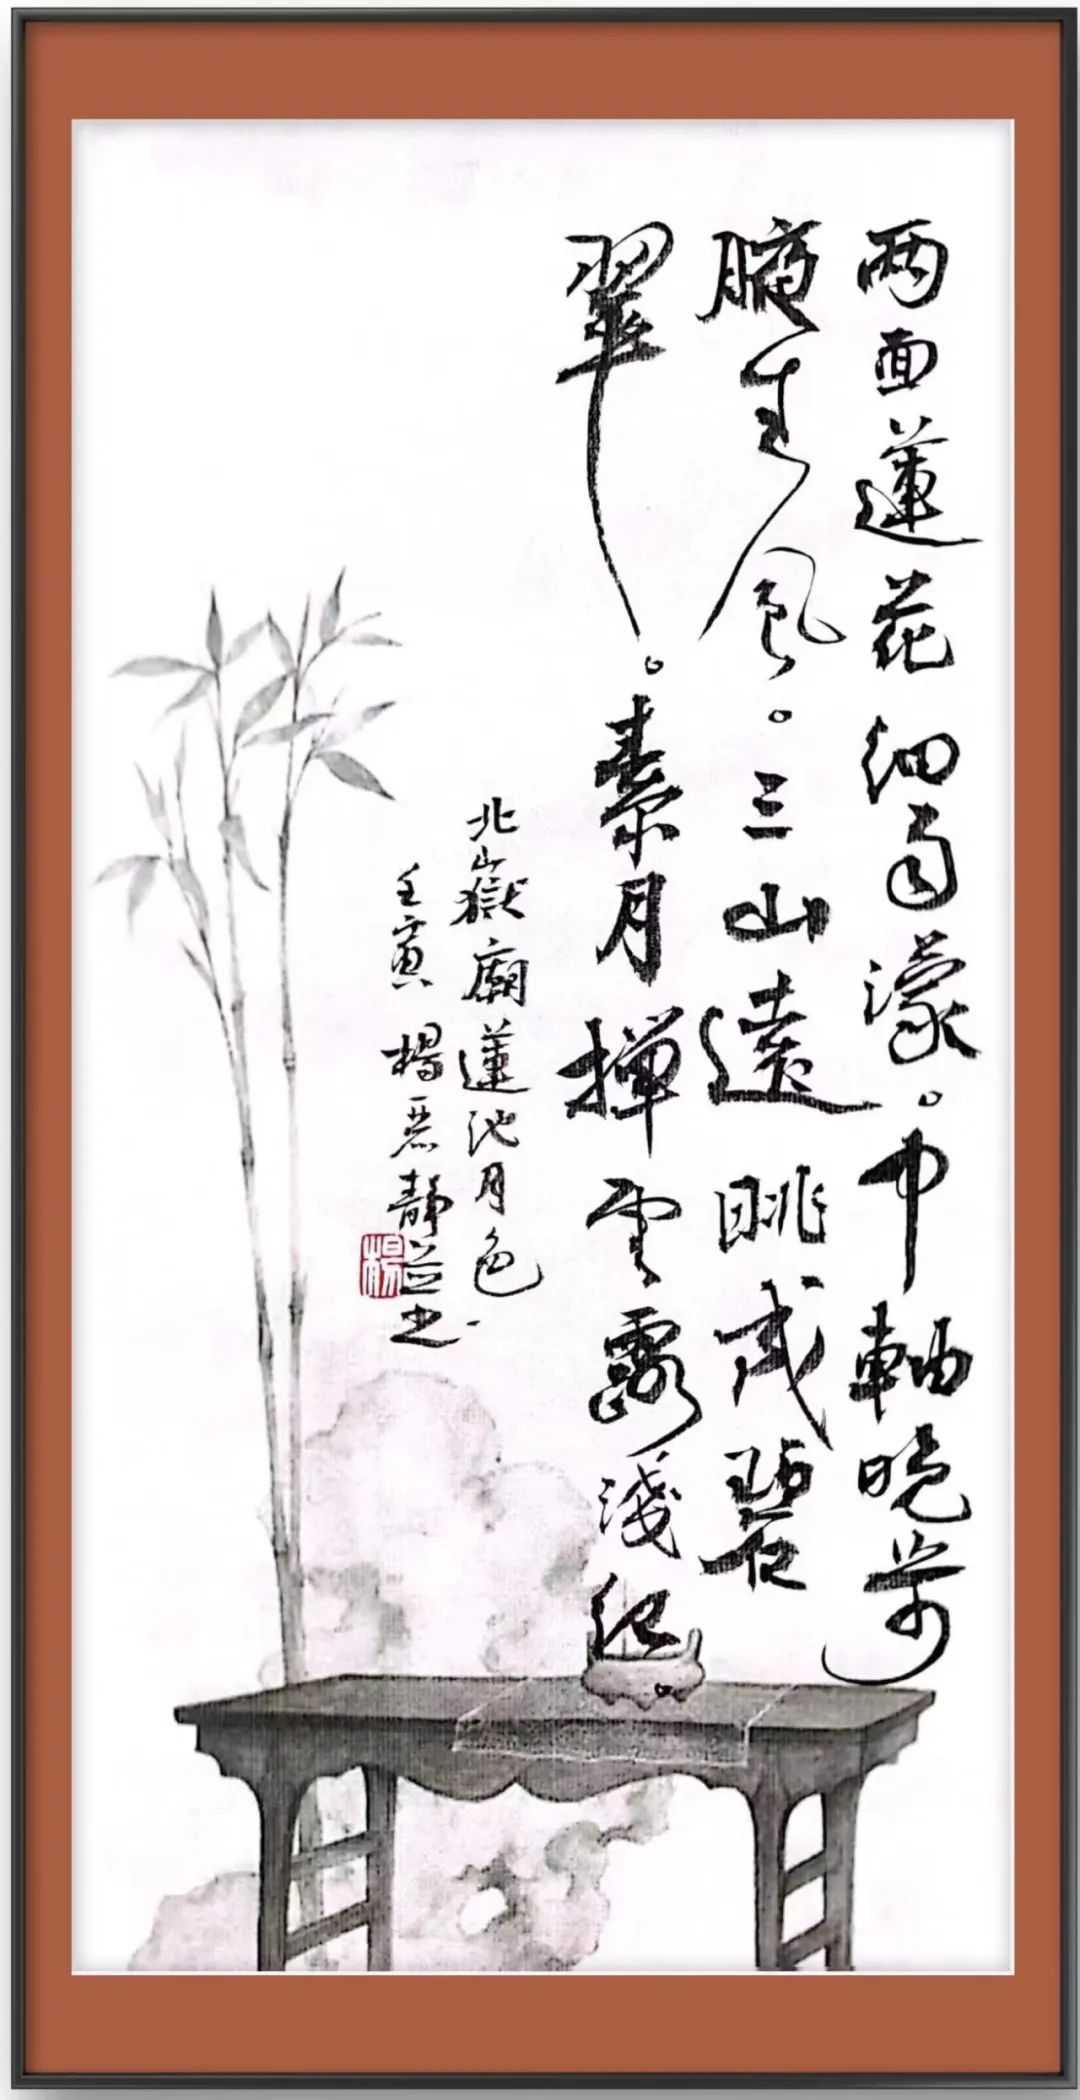 兩面蓮花細雨濛。中軸晚步
腋生風。三山遠眺成碧
翠。素月撣雲露淺紅。
北嶽廟蓮池月色
壬寅 楊丽靜並书
楊